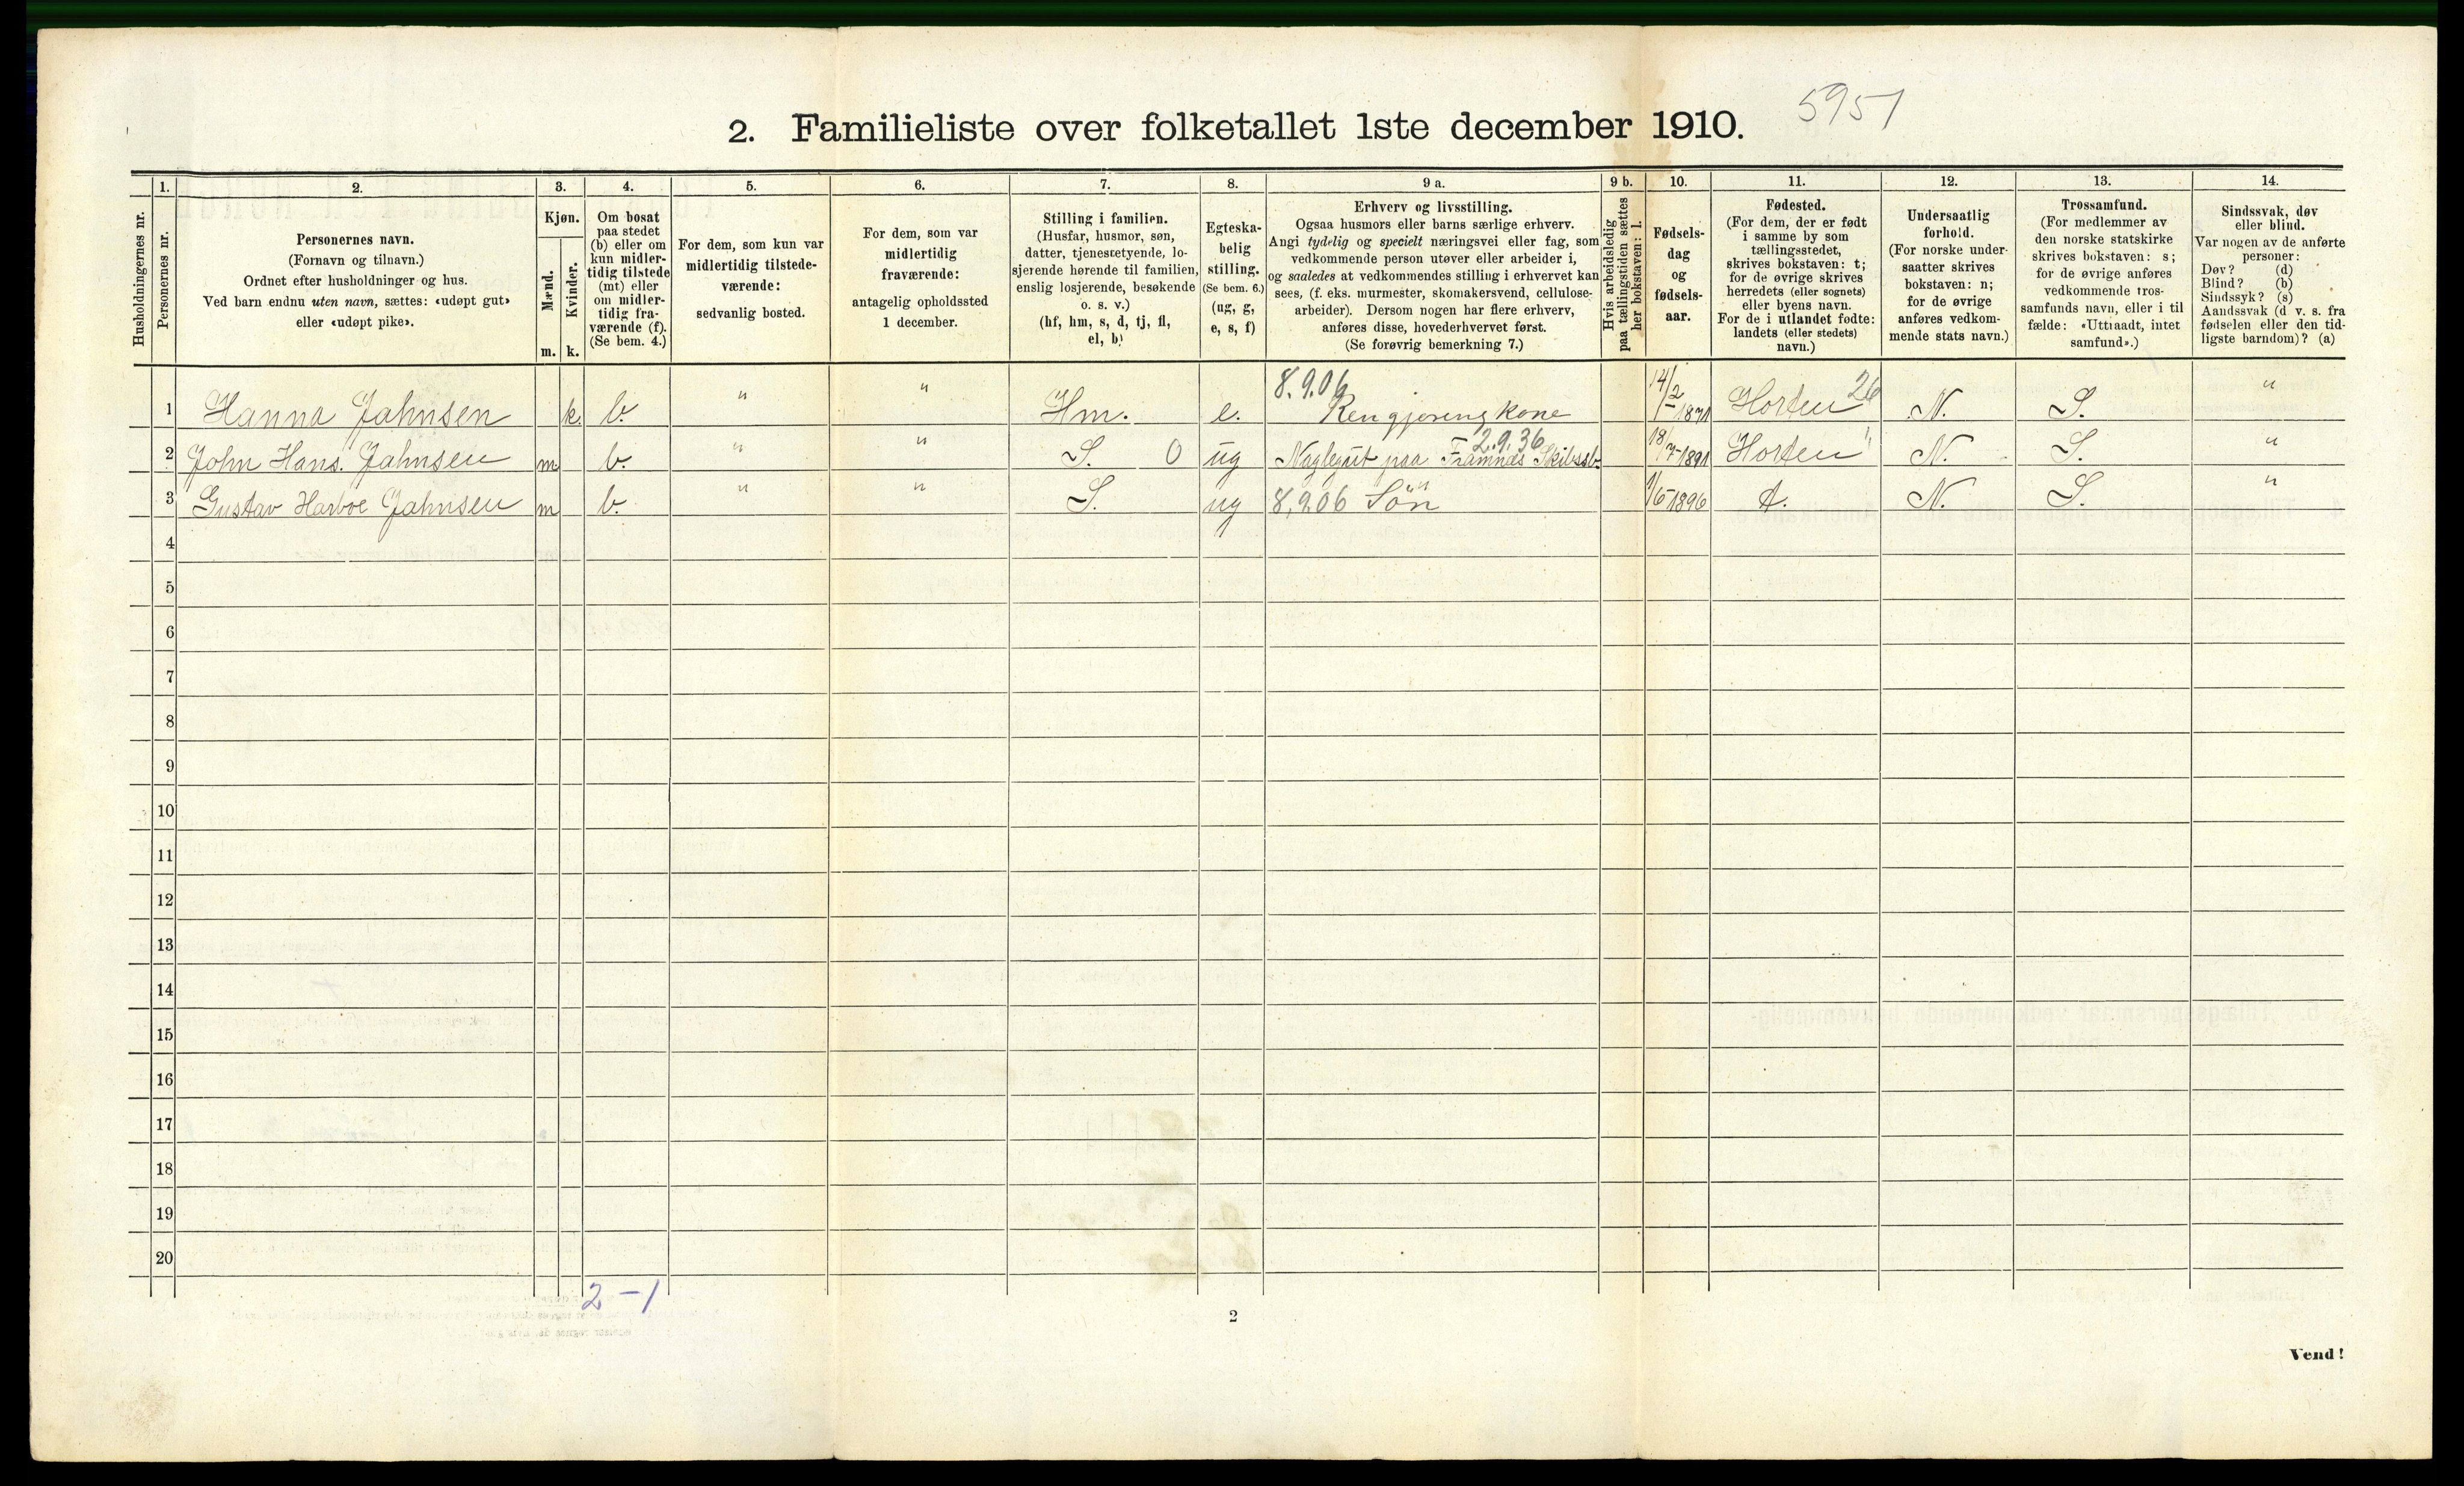 5951
2. Familieliste over folketallet 1ste december 1910.
1. 2. 3. 4. 5. 6. 7. 8. 9 a. 9 b. 10. 11. 12. 13. 14.
Husholdningernes nr.
Personernes nr.
Personernes navn.
(Fornavn og tilnavn.)
Ordnet efter husholdninger og hus.
Ved barn endnu uten navn, sættes: «udøpt gut»
eller «udøpt pike».
Kjøn.
Mænd.
m.
Kvinder.
k.
Om bosat
paa stedet
(b) eller om
kun midler-
tidig tilstede
(mt) eller
om midler-
tidig fra-
værende (f).
(Se bem. 4.)
For dem, som kun var
midlertidig tilstede-
værende:
sedvanlig bosted.
For dem, som var
midlertidig
fraværende:
antagelig opholdssted
1 december.
Stilling i familien.
(Husfar, husmor, søn,
datter, tjenestetyende, lo-
sjerende hørende til familien,
enslig losjerende, besøkende
o. s. v.)
(hf, hm, s, d, tj, fl,
el, b)
Egteska-
belig
stilling.
(Se bem. 6.)
(ug, g,
e, s, f)
Erhverv og livsstilling.
Ogsaa husmors eller barns særlige erhverv.
Angi tydelig og specielt næringsvei eller fag, som
vedkommende person utøver eller arbeider i,
og saaledes at vedkommendes stilling i erhvervet kan
sees, (f. eks. murmester, skomakersvend, cellulose-
arbeider). Dersom nogen har flere erhverv,
anføres disse, hovederhvervet først.
(Se forøvrig bemerkning 7.)
Hvis arbeidsledig
paa tællingstiden sættes
her bokstaven: l.
Fødsels-
dag
og
fødsels-
aar.
Fødested.
(For dem, der er født
i samme by som
tællingsstedet,
skrives bokstaven: t;
for de øvrige skrives
herredets (eller sognets)
eller byens navn.
For de i utlandet fødte:
landets (eller stedets)
navn.)
Undersaatlig
forhold.
(For norske under-
saatter skrives
bokstaven: n;
for de øvrige
anføres vedkom-
mende stats navn.)
Trossamfund.
(For medlemmer av
den norske statskirke
skrives bokstaven: s;
for de øvrige anføres
vedkommende tros-
samfunds navn, eller i til
fælde: «Uttraadt, intet
samfund».)
Sindssvak, døv
eller blind.
Var nogen av de anførte
personer:
Døv? (d)
Blind? (b)
Sindssyk? (s)
Aandssvak (d v. s. fra
fødselen eller den tid-
ligste barndom)? (a)
1 Hanna Jahnsen k. b. " " Hm. e. 8.9.06 Rengjøringkone 14/2 1871 Horten 26 N. S. "
2 John Hans. Jahnsen m. b. " " S. 0 ug Naglegut paa Framnæs Skibssb. 2.9.36 18/7-1891 Horten " N. S. "
3 Gustav Harboe Jahnsen m b. " " S. ug 8,9.06 Søn 1/6-1896 t. N. S. "
4
5
6
7
8
9
10
11
12
13
14
15
16
17
18
19
20
2-1
2
Vend!